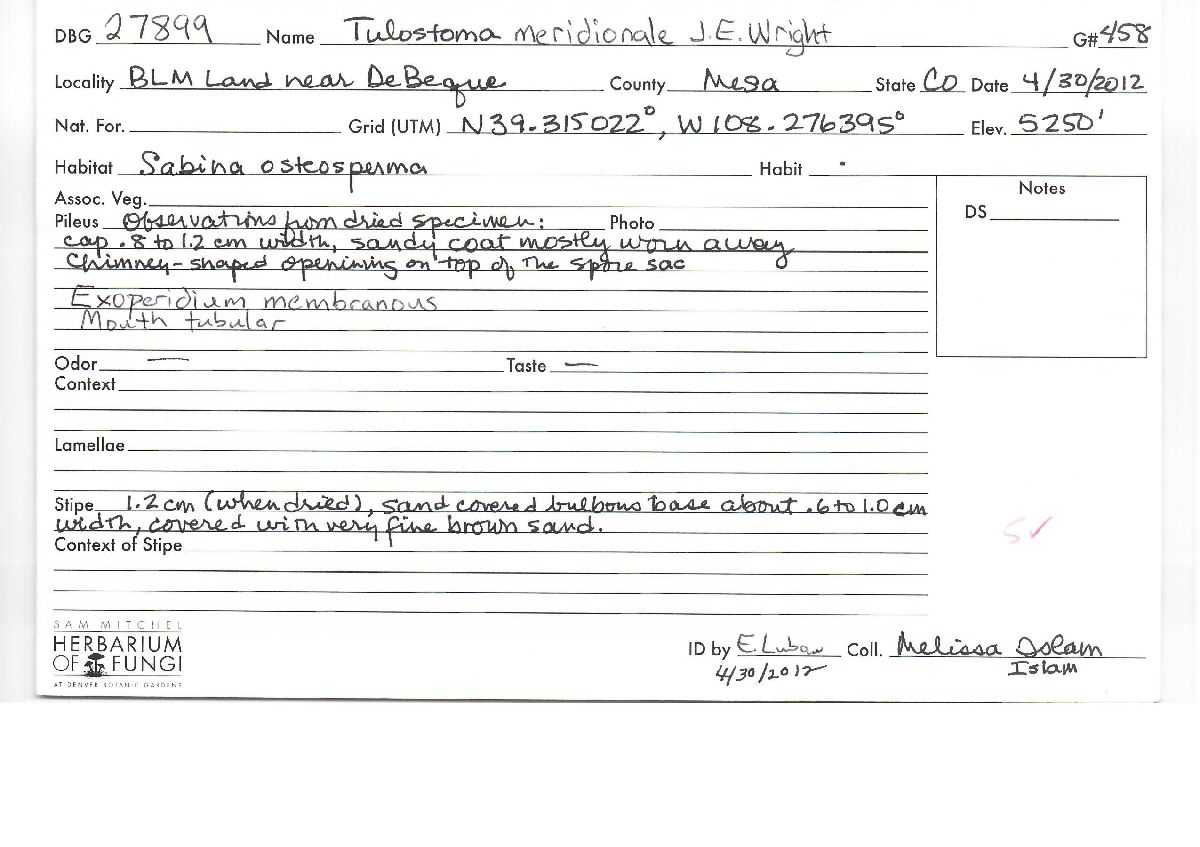 DBG 27899 Name Tulostoma meridionale J.E. Wright G# 458
Locality BLM Land near DeBeque County Mesa State CO Date 4/30/2012
Nat. For. Grid (UTM) N39.315022°, W108.276395° Elev. 5250'
Habitat Sabina osteosperma Habit
Assoc. Veg. Notes
DS
Pileus Observations from dried specimen: Photo
cap .8 to 1.2 cm width, sandy coat mostly worn away
Chimney-shaped openining on top of the spore sac
Exoperidium membranous
Mouth tubular
Odor — Taste —
Context
Lamellae
Stipe 1.2 cm (when dried), sand covered bulbous base about .6 to 1.0 cm
width, covered with very fine brown sand.
Context of Stipe
SAM MITCHEL
HERBARIUM
OF FUNGI
AT DENVER BOTANIC GARDENS
ID by E. Lubow Coll. Melissa Islam
4/30/2012 Islam